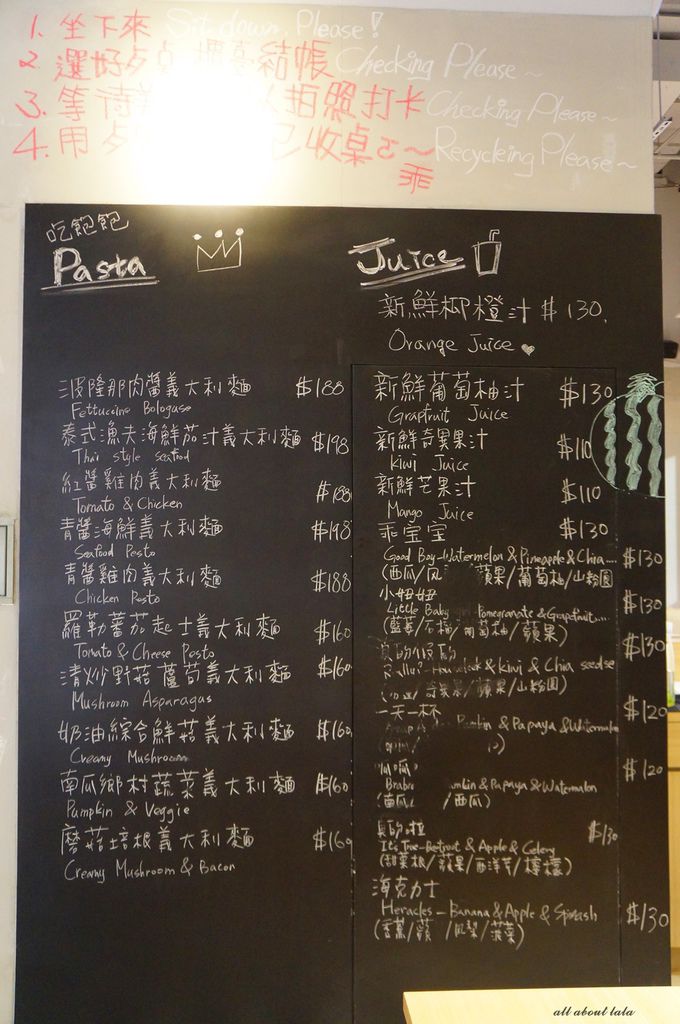 1. 坐下來 Sit down, Please!
2. 選好 結帳 Checking Please~
3. 等待 拍照打卡 Checking Please~
4. 用 收桌 ~ Recycleing Please~
乖
吃飽飽
Pasta
波隆那肉醬義大利麵 $188
Fettuccine Bologuse
泰式漁夫海鮮茄汁義大利麵 $198
Thai style seafod
紅醬雞肉義大利麵 $188
Tomato & Chicken
青醬海鮮義大利麵 $198
Seafood Pesto
青醬雞肉義大利麵 $188
Chicken Pesto
羅勒蕃茄起士義大利麵 $160
Tomato & Cheese Pesto
清炒野菇蘆筍義大利麵 $160
Mushroom Asparagas
奶油綜合鮮菇義大利麵 $160
Creamy Mushroom
南瓜鄉村蔬菜義大利麵 $160
Pumpkin & Veggie
蘑菇培根義大利麵 $160
Creamy Mushroom & Bacon
Juice
新鮮柳橙汁 $130.
Orange Juice
新鮮葡萄柚汁 $130
Grapfruit Juice
新鮮奇異果汁 $110
Kiwi Juice
新鮮芒果汁 $110
Mango Juice
乖宝宝 $130
Good Boy-Watermelon & Pineapple & Chia.... $130
(西瓜/鳳 /蘋果/葡萄柚/山粉圓
小妞妞 $130
Little Baby Pomegranate & Grapefruit....
(藍莓/石榴/葡萄柚/蘋果)
$130
& Kiwi & Chia seedse
奇異果/蘋果/山粉圓)
一天一杯 $120
& Papaya & Watermelon
呱呱 $120
& Papaya & Watermelon
(南瓜 /西瓜)
真的 $130
It's True-Beetroot & Apple & Celery
(甜菜根/蘋果/西洋芹/檸檬)
海克力士
Heracles - Banana & Apple & Spinash $130
(香蕉/蘋 /鳳梨/菠菜)
all about lala